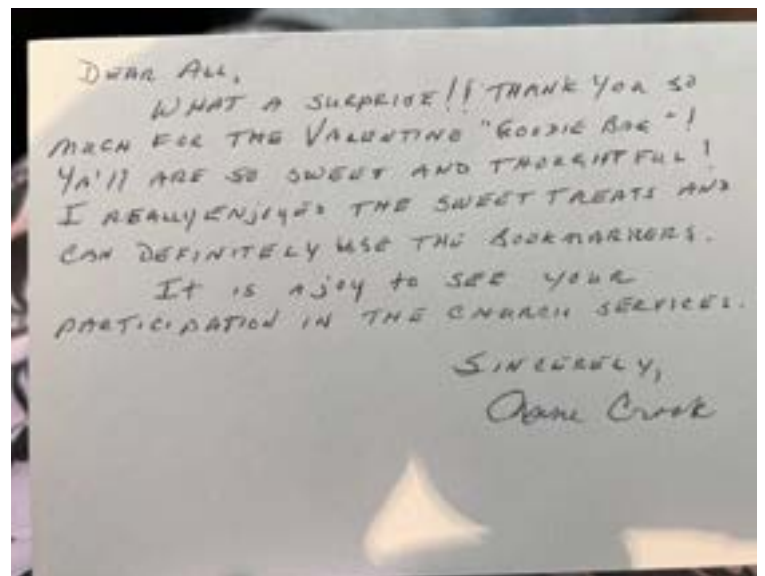 Dear All,
What a surprise!! Thank you so
much for the Valentine "Goodie Bag"!
Ya'll are so sweet and thoughtful!
I really enjoyed the sweet treats and
can definitely use the bookmarkers.
It is a joy to see your
participation in the church services.
Sincerely,